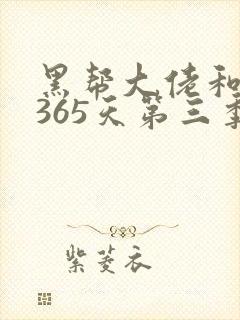 黑帮大佬和
365天第三季
紫菱衣